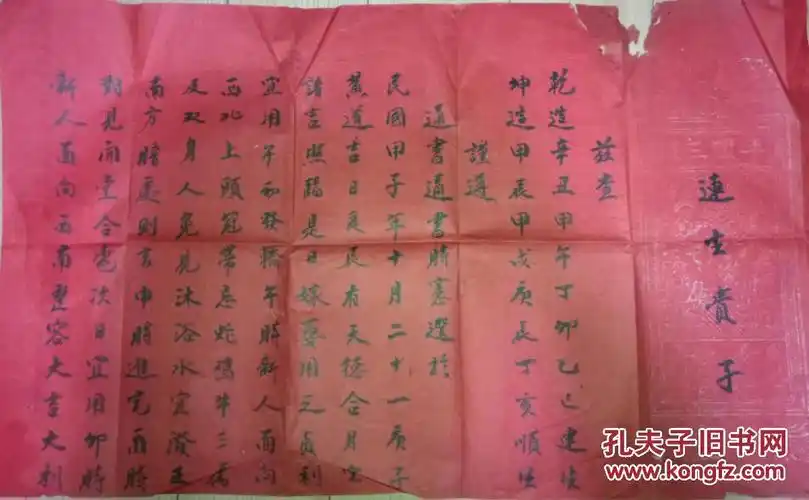 連生貴子
茲查
乾造辛丑甲午丁卯乙巳建生
坤造甲辰甲戌庚辰丁亥順生
謹遵
通書通書時憲選於
民國甲子年十月二十一庚子
黃道吉日良辰有天德合月空
諸吉照臨是日嫁娶用之貞利
宜用午初發轎午時新人面向
西北上頭冠帶忌蛇鷄牛三屬
及双身人免見沐浴水宜潑正
南方暗處則吉申時進宅酉時
對見面堂合卺次日宜用卯時
新人面向西南整容大吉大利
孔夫子旧书网
www.kongfz.com